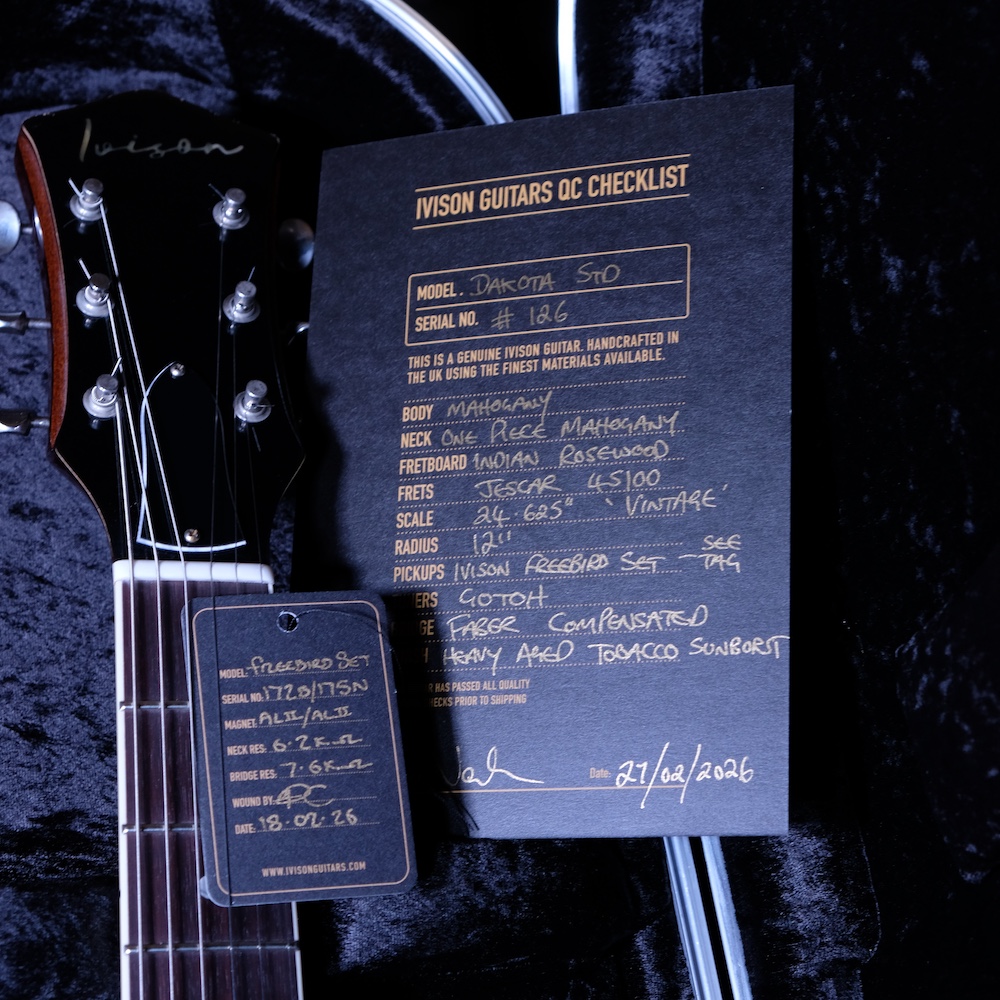 Ivison
IVISON GUITARS QC CHECKLIST
MODEL. DAKOTA STD
SERIAL NO. # 126
THIS IS A GENUINE IVISON GUITAR. HANDCRAFTED IN
THE UK USING THE FINEST MATERIALS AVAILABLE.
BODY MAHOGANY
NECK ONE PIECE MAHOGANY
FRETBOARD INDIAN ROSEWOOD
FRETS JESCAR 45100
SCALE 24.625" 'VINTAGE'
RADIUS 12"
PICKUPS IVISON FREEBIRD SET - SEE TAG
ERS GOTOH
GE FABER COMPENSATED
H HEAVY AGED TOBACCO SUNBURST
R HAS PASSED ALL QUALITY
HECKS PRIOR TO SHIPPING
Date: 27/02/2026
MODEL: FREEBIRD SET
SERIAL NO: 172B/175N
MAGNET: ALII/ALII
NECK RES: 6.2K Ω
BRIDGE RES: 7.6K Ω
WOUND BY:
DATE: 18.02.26
WWW.IVISONGUITARS.COM